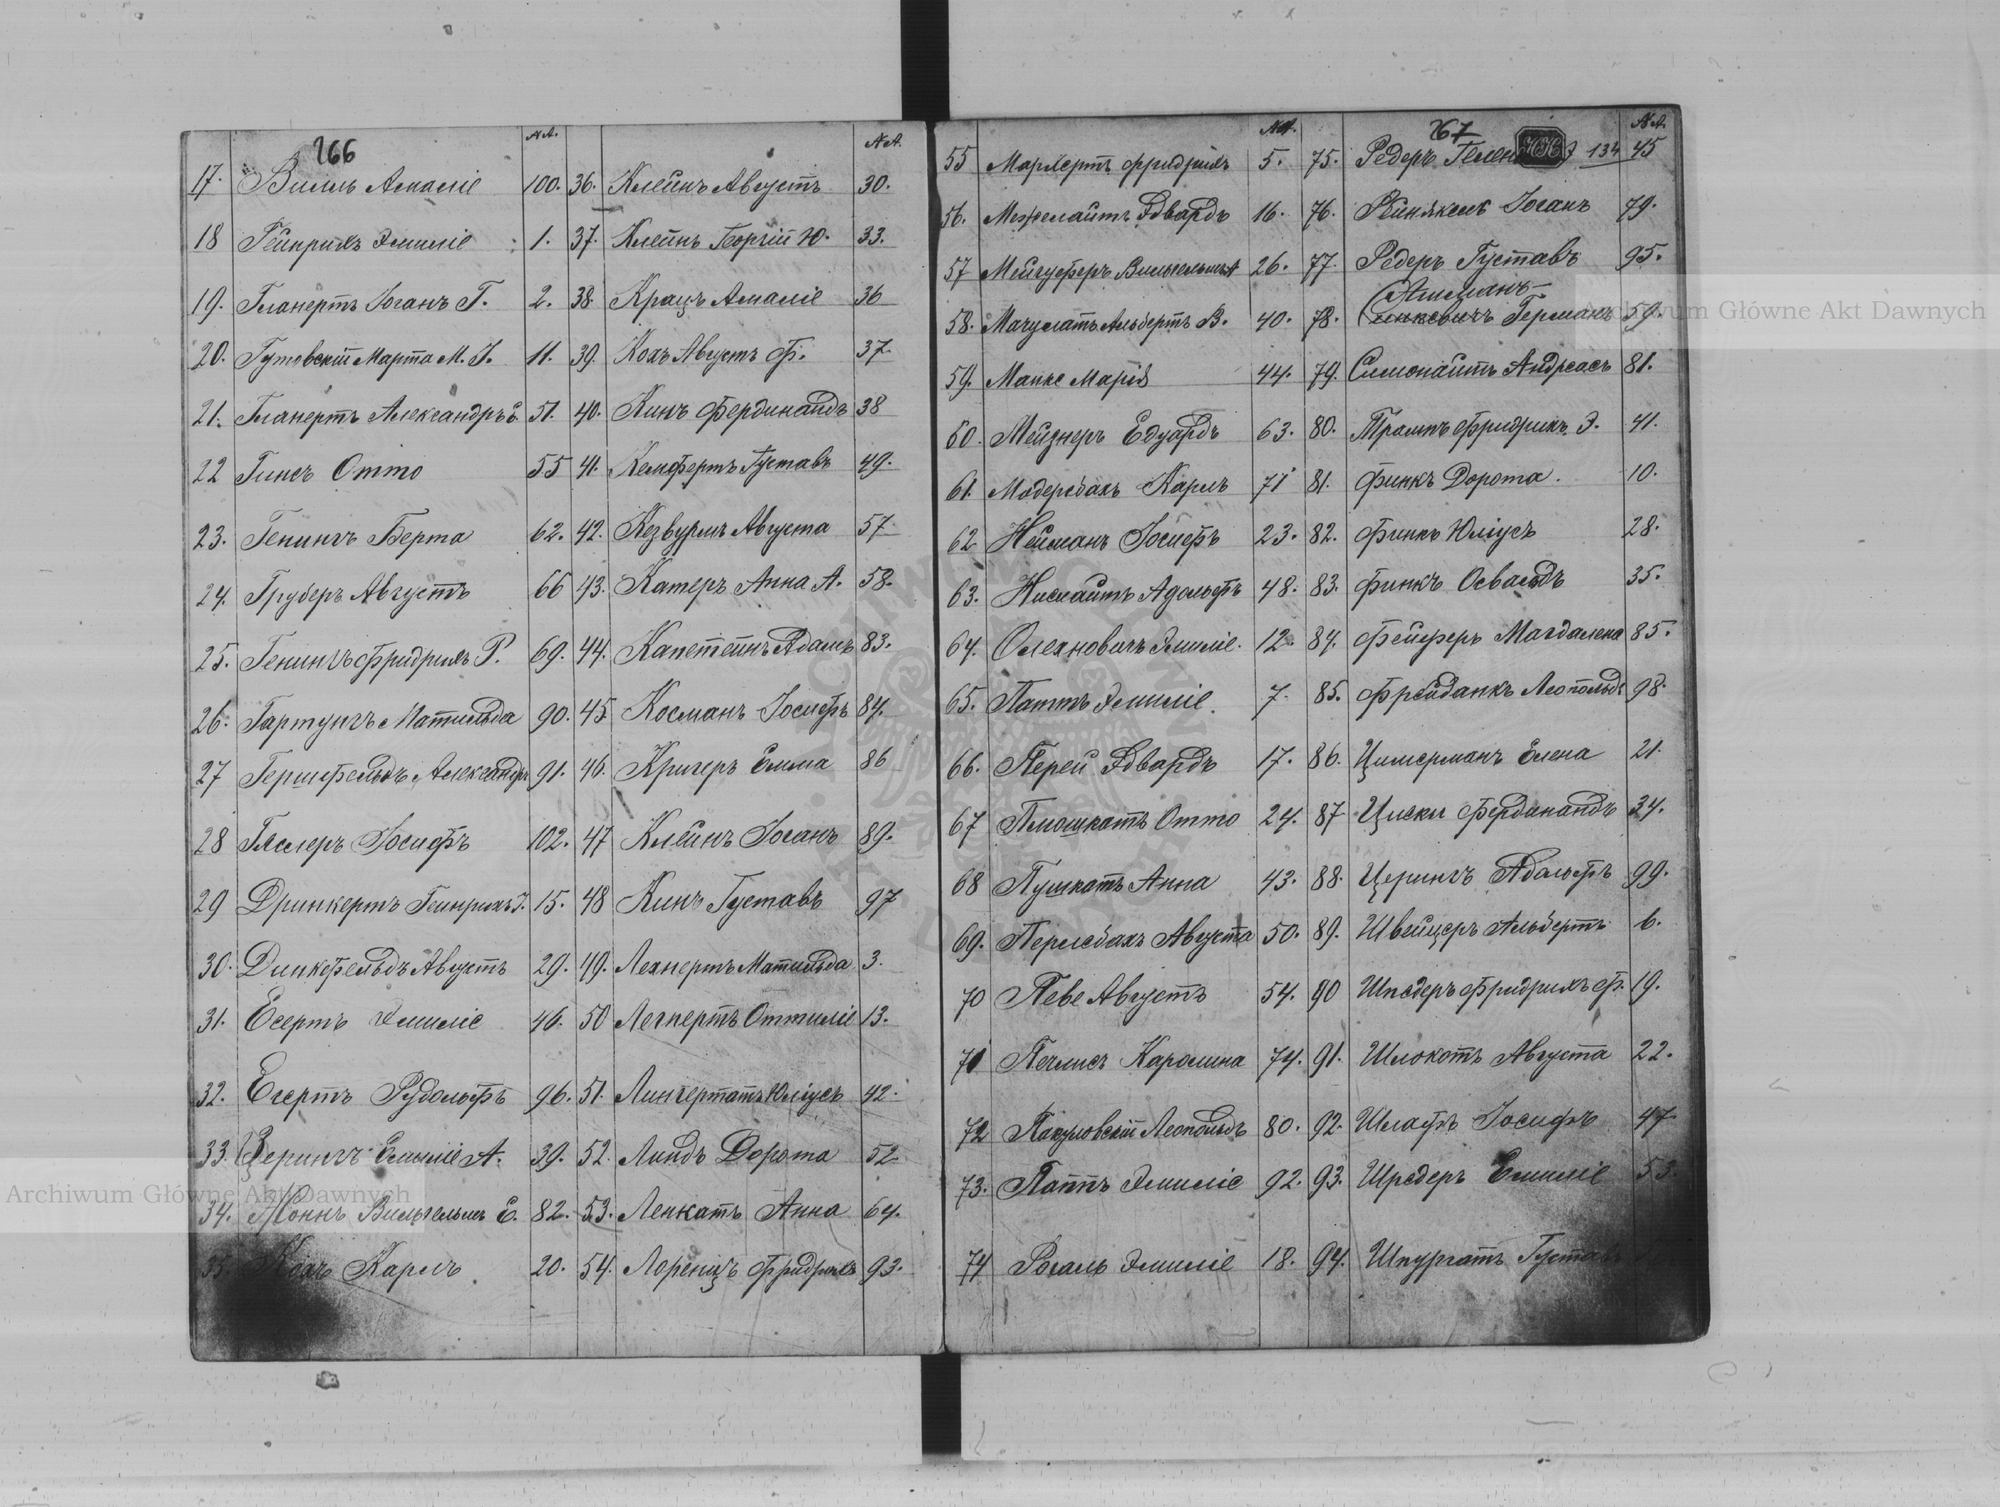 266
NA.
17. Вилль Амаліе 100.
18 Гейнрихъ Эмиліе 1.
19. Гланертъ Іоганъ Г. 2.
20. Гутовскій Марта М. І. 11.
21. Гланертъ Александръ Е. 51.
22 Гинсъ Отто 55
23. Генингъ Берта 62.
24. Груберъ Августъ 66
25. Генингъ Фридрихъ Р. 69.
26. Гартунгъ Матильда 90.
27 Гершфельдъ Александръ 91.
28 Геслеръ Іосифъ 102.
29 Дринкертъ Гейнрихъ І. 15.
30. Динкфельдъ Августъ 29.
31. Есертъ Эмиліе 46.
32. Егертъ Рудольфъ 96.
33. Церингъ Емиліе А. 39.
34. Жоннъ Вильгельмъ Е. 82.
35. Кохъ Карлъ 20.
NA.
36. Клейнъ Августъ 30.
37. Клейнъ Георгій Ю. 33.
38 Крацъ Амаліе 36
39. Кохъ Августъ Ф. 37
40. Кинъ Фердинандъ 38
41. Кемфертъ Густавъ 49.
42. Кезвурмъ Августа 57
43. Катеръ Анна А. 58.
44. Капетейнъ Адамъ 83.
45 Косманъ Іосифъ 84.
46. Кригеръ Емма 86
47 Клейнъ Іоганъ 89.
48 Кинъ Густавъ 97
49. Лехнертъ Матильда 3.
50 Легнертъ Оттиліе 13.
51. Лингертатъ Юліусъ 42.
52. Линдъ Дорота 52
53. Ленкатъ Анна 64.
54. Лоренцъ Фридрихъ 93.
NA.
55 Мархертъ Фридрихъ 5.
56. Межелайтъ Эдвардъ 16.
57 Мейгуферъ Вильгельмъ А 26.
58. Мачулатъ Альбертъ В. 40.
59. Манке Марія 44.
60. Мейзнеръ Едуардъ 63.
61. Модерсбахъ Карлъ 71
62 Нейманъ Іосифъ 23.
63. Нисмайтъ Адольфъ 48.
64. Олехновичъ Эмиліе. 12
65. Паттъ Эмиліе. 7.
66. Перей Эдвардъ 17.
67 Плюшкатъ Отто 24.
68 Пушкатъ Анна 43.
69. Перлебахъ Августа 50.
70 Певе Августъ 54.
71 Печлисъ Каролина 74.
72 Пакуловскій Леопольдъ 80.
73. Паттъ Эмиліе 92.
74 Рогаль Эмиліе 18.
267
NA.
134
75. Редеръ 45
76. Рейнъкель Іоганъ 79.
77. Редеръ Густавъ 95.
78. Германъ 59.
79. Симонайтъ Андреасъ 81.
80. Трампъ Фридрихъ Э. 41.
81. Финкъ Дорота. 10.
82. Финкъ Юліусъ 28.
83. Финкъ Освальдъ 35.
84. Фейферъ Магдалена 85.
85. Фрейданкъ Леопольдъ 98.
86. Цимерманъ Елена 21.
87 Циски Фердинандъ 34.
88. Церингъ Адольфъ 99.
89. Швейцеръ Альбертъ 6.
90 Шпедеръ Фридрихъ Ф. 19.
91. Шлокотъ Августа 22.
92. Шлафъ Іосифъ 47
93. Шредеръ Емиліе 53
94. Шпургатъ Густавъ
Archiwum Główne Akt Dawnych
Archiwum Główne Akt Dawnych